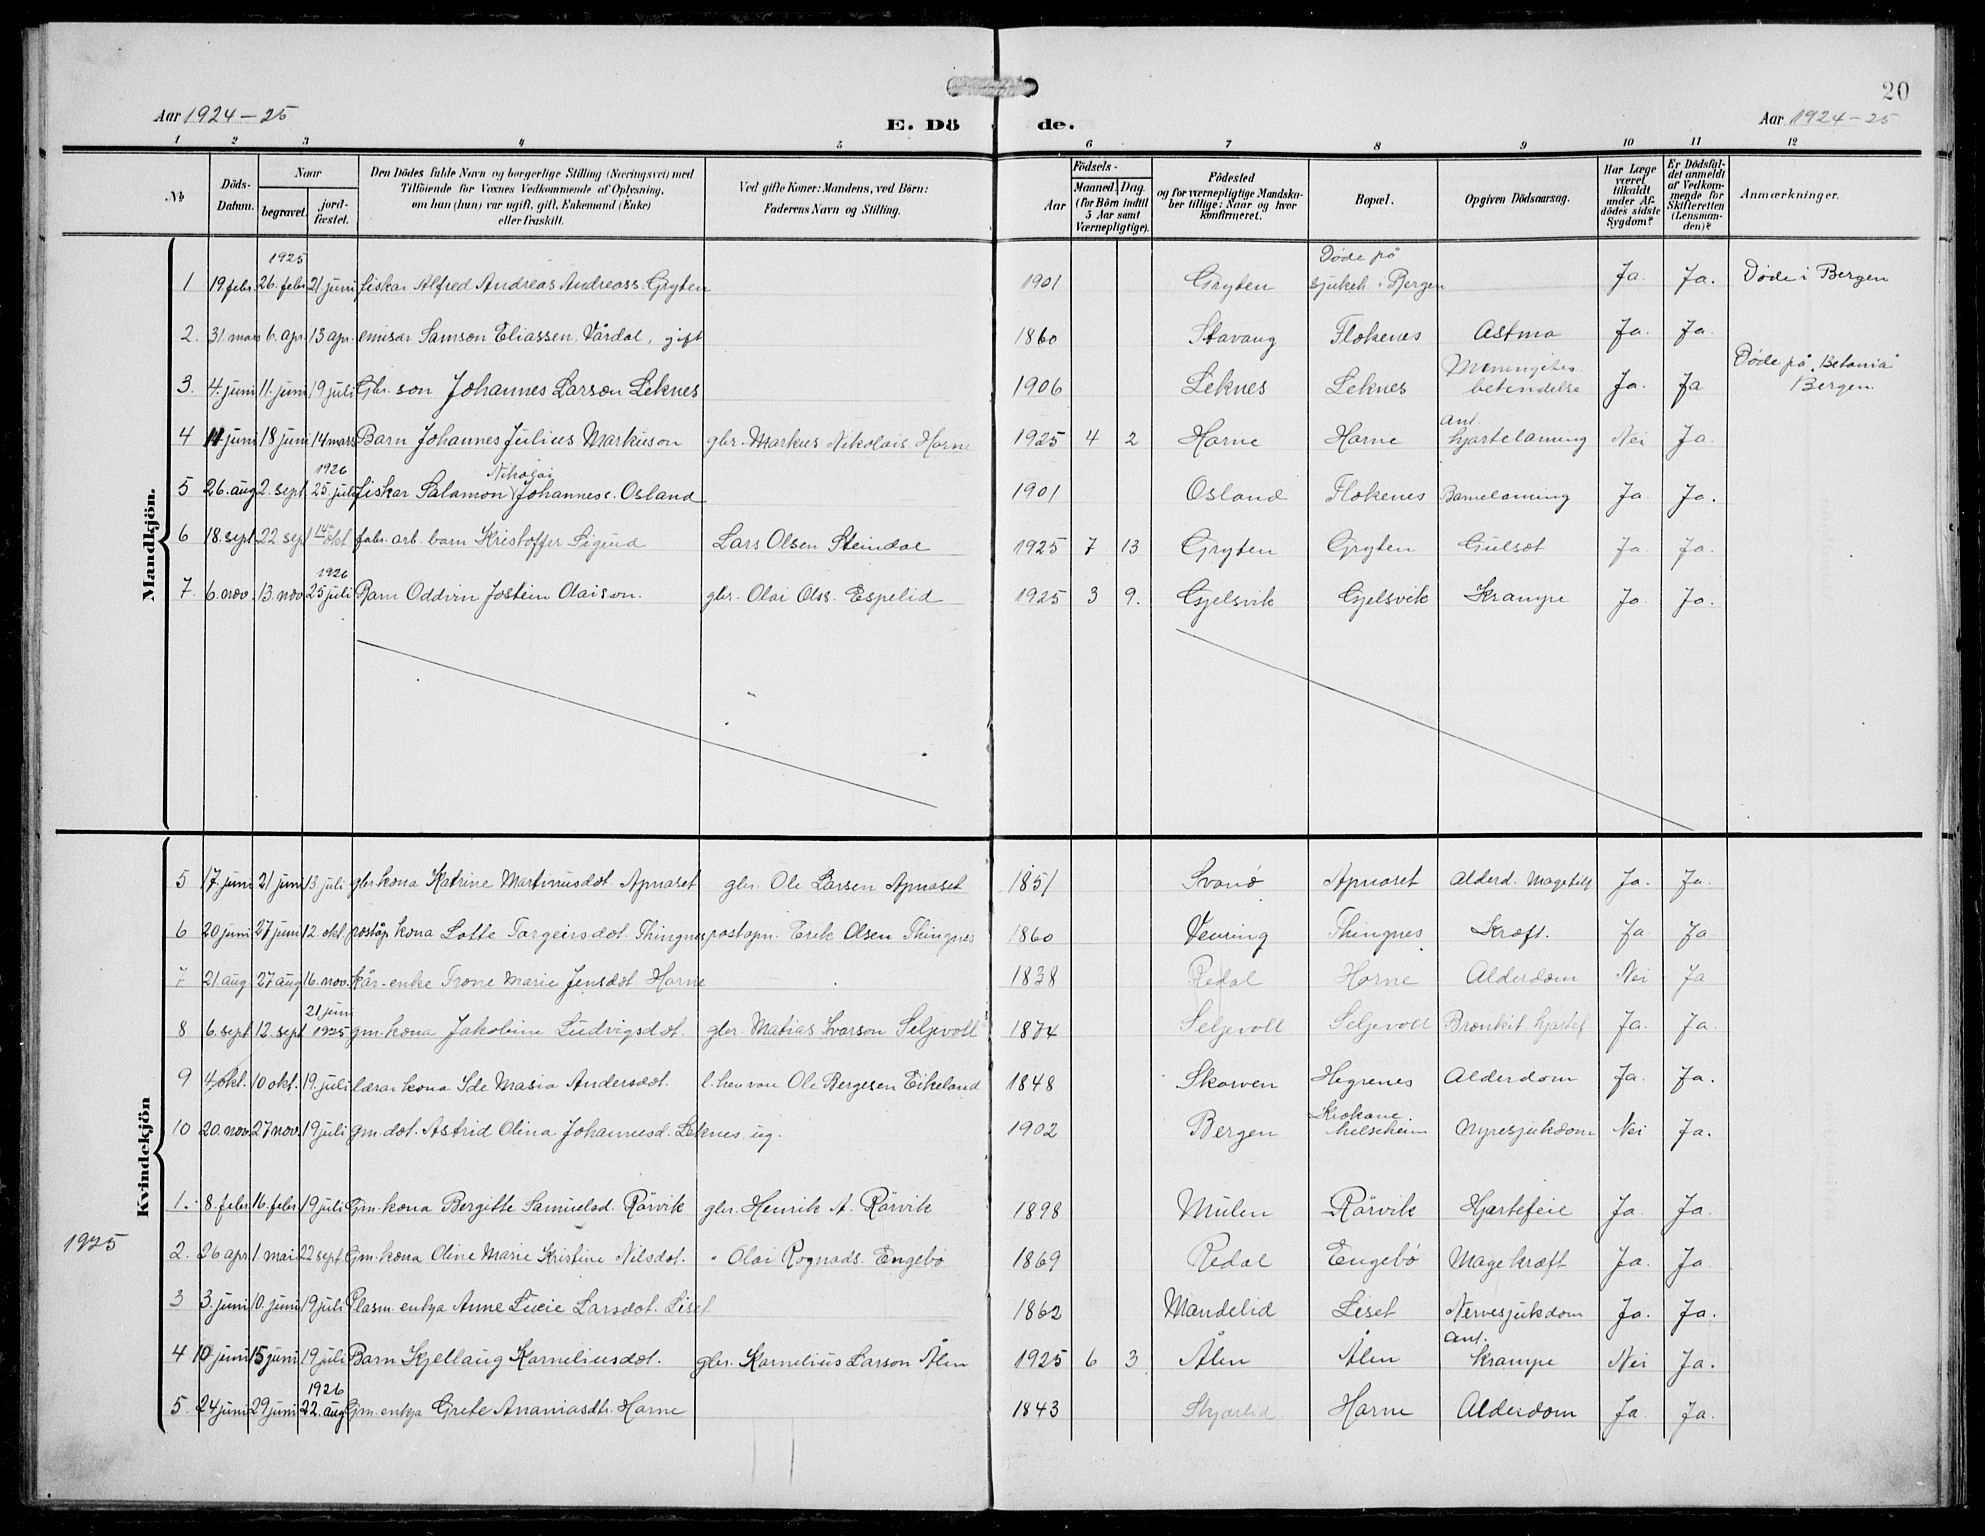 20
Aar 1924-25
E. Dö de.
Aar 1924-25
1 2 3 4 5 6 7 8 9 10 11 12
No
Döds-Datum.
Naar
begravet.
jord-fæstet.
Den Dödes fulde Navn og borgerlige Stilling (Næringsvei) med
Tilföiende for Voxnes Vedkommende af Oplysning,
om han (hun) var ugift, gift, Enkemand (Enke)
eller fraskilt.
Ved gifte Koner: Mandens, ved Börn:
Faderens Navn og Stilling.
Födsels-
Aar
Maaned. Dag.
(for Börn indtil
5 Aar samt
Værnepligtige).
Födested
og for værnepligtige Mandska-
ber tillige: Naar og hvor
Konfirmeret.
Bopæl.
Opgiven Dödsaarsag.
Har Læge
været
tilkaldt
under Af-
dödes sidste
Sygdom?
Er Dödsfal-
det anmeldt
af Vedkom-
mende for
Skifteretten
(Lensman-
den)?
Anmærkninger.
Mandkjön.
1925
1 19. febr. 26. febr 21 juni fiskar Alfred Andreas Andreass. Gryten 1901 Gryten Døde på sjukeh. i Bergen Ja. Ja. Døde i Bergen
2. 31 mars 6. apr. 13 apr. emisær Samson Eliassen Vårdal, gift 1860 Stavang Flokenes Astma Ja. Ja.
3. 4. juni 11. juni 19 juli Gbr. son Johannes Larson Leknes 1906 Leknes Leknes Meningites. betendelse Ja. Ja Døde på "Betania" Bergen
4 11 juni 18 juni 14 mars Barn Johannes Julius Markusson gbr. Markus Nikolais. Horne 1925 4 2 Horne Horne ant. hjartelaming Nei Ja.
1926
5 26. aug 2. sept. 25 juli fiskar Salamon Nikolai Johanness. Osland 1901 Osland Flokenes Barnelaming Ja. Ja.
6 18. sept. 22 sept 14 okt fabr. arb. barn Kristoffer Sigurd Lars Olsen Steindal 1925 7 13 Gryten Gryten Gulsot Ja. Ja.
1926
7. 6. nov. 13. nov 25 juli Barn Oddvin Jostein Olaison. gbr. Olai Olss. Espelid 1925 3 9. Gjelsvik Gjelsvik Krampe Ja Ja.
Kvindekjön
5 17. juni 21 juni 13 juli gbr kona Katrine Martinusdot. Apnaset gbr. Ole Larsen Apnaset 1851 Svanø Apnaset Alderd. Magetilf Ja. Ja.
6 20 juni 27 juni 12. okt. poståp kona Lotte Torgeirsdot. Thingnes postopn. Erik Olsen Thingnes 1860 Vevring Thingnes Kræft. Ja. Ja
7 21 aug. 27 aug 16. nov. kår-enke Trone Marie Jensdot. Horne 1838 Redal Horne Alderdom Nei Ja
21 juni
8 6. sept. 12. sept 1925 gm. kona Jakobine Ludvigsdot. gbr. Matias Ivarson Seljevoll 1874 Seljevoll Seljevoll Bronkit hjartef Ja. Ja.
9 4. okt. 10 okt. 19. juli lærar kona Ide Masia Andersdot. Ole Bergesen Eikeland 1848 Skorven Hegrenes Alderdom Ja. Ja.
10 20. nov. 27 nov. 19 juli gm. dot. Astrid Olina Johannesd. Leknes ug. 1902 Bergen Krokane helseheim Nyresjukdom Nei Ja.
1925
1. 8. febr 16. febr 19 juli Gm. kona Bergitte Samuelsd. Rørvik gbr. Henrik A. Rørvik 1898 Mulen Rørvik Hjartefeil Ja. Ja.
2. 26 apr. 1. mai 22 sept. Gm. kona Oline Marie Kristine Nilsdot. " Olai Rognads. Engebø 1869 Redal Engebø Magekræft Ja. Ja.
3 3. juni 10. juni 19 juli Plasm. enkja Anne Lucie Larsdot. Liset 1862 Mandelid Liset Nervesjukdom Ja. Ja.
4 10 juni 15 juni 19 juli Barn Kjellaug Korneliusdot. gbr. Kornelius Larson Ålen 1925 6 3 Ålen Ålen ant. krampe Nei Ja.
1926
5. 24 juni 29 juni 22. aug Gm. enkja Grete Ananiasdtr. Horne 1843 Skjærlid Horne Alderdom Ja. Ja.